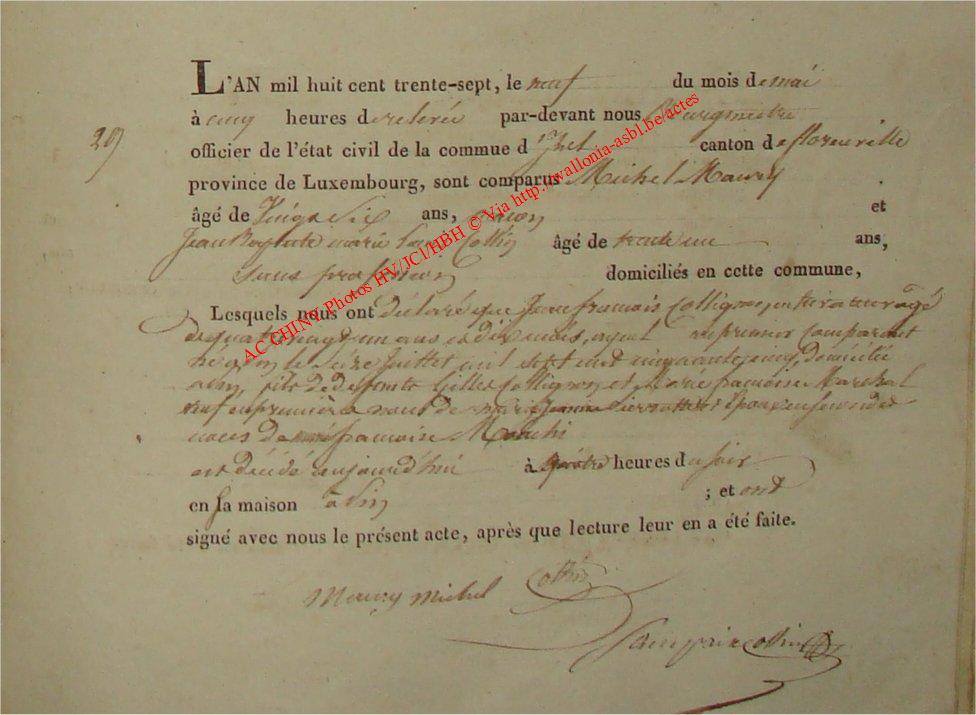 L'AN mil huit cent trente-sept, le neuf du mois de mai
à cinq heures de relevée par-devant nous Bourgmestre
29
officier de l'état civil de la commue d' canton de florenville
province de Luxembourg, sont comparus Michel Maury
âgé de Vingt Six ans, et
Jean Baptiste marie Louis Collin âgé de trente un ans,
Sans profession domiciliés en cette commune,
Lesquels nous ont déclaré que Jean francois Collignon, cultivateur agé
de quatre vingt un ans et dix mois, ayeul du premier comparant
né à le Seize Juillet mil sept cent cinquante cinq, domicilié
fils de defunts Gilles Collignon et Marie francoise Marchal
veuf en premières noces de marie Jeanne Epoux en secondes
noces de francoise
est décédé aujourd'hui à quatre heures du soir
en sa maison à ; et ont
signé avec nous le présent acte, après que lecture leur en a été faite.
Maury Michel Collin
Collin
AC CHINY Photos HV/JCl/HBH © Via http://wallonia-asbl.be/actes